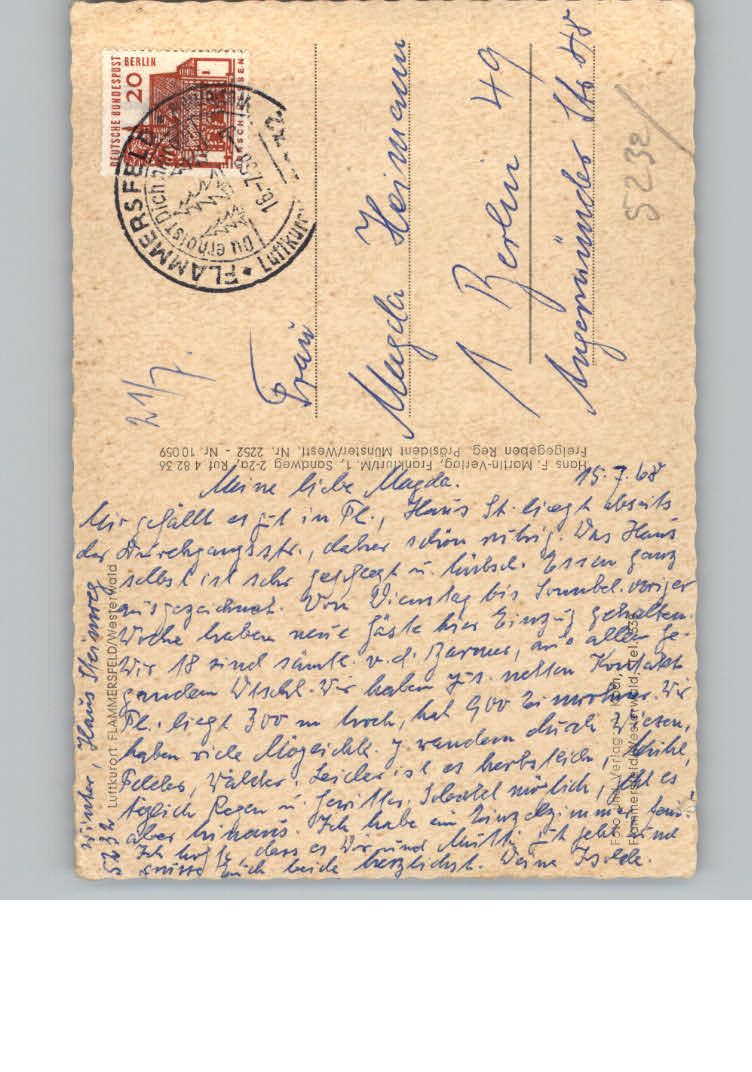 DEUTSCHE BUNDESPOST
BERLIN
20
FLAMMERSFELD
Luftkurort
Du erholst Dich
16.-7.68
21/7.
Frau
Magda Heimann
1 Berlin 49
Angermünder Str. 48
523e/
Hans F. Martin-Verlag, Frankfurt/M. 1, Sandweg 2-2a, Ruf 4 82 36
Freigegeben Reg. Präsident Münster/Westf. Nr. 2252 - Nr. 10 059
15.7.68
Meine liebe Magda.
Mir gefällt es gut in Fl., Haus St. liegt abseits
der Durchgangsstr., daher schön ruhig. Das Haus
selbst ist sehr gepflegt u. hübsch. Essen ganz
ausgezeichnet. Von Dienstag bis Sonnabd. voriger
Woche haben neue Gäste hier Einzug gehalten.
Wir 18 sind sämtl. v. d. Barmer, aus aller Ge-
genden Dtschl. Wir haben z. T. netten Kontakt
Fl. liegt 300 m hoch, hat 900 Einwohner. Wir
haben viele Möglichk. z. wandern durch Wiesen,
Felder, Wälder. Leider ist es herbstlich, kühl,
täglich Regen u. Gewitter, sobald möglich, geht es
aber hinaus. Ich habe ein Einzelzimmer
Ich hoffe, dass es Dir und Mutti gut geht und
grüsse Euch beide herzlichst. Deine Isolde.
5232
Haus Steinweg
Luftkurort FLAMMERSFELD/Westerwald
Foto und Verlag:
Flammersfeld/Westerwald, Tel.